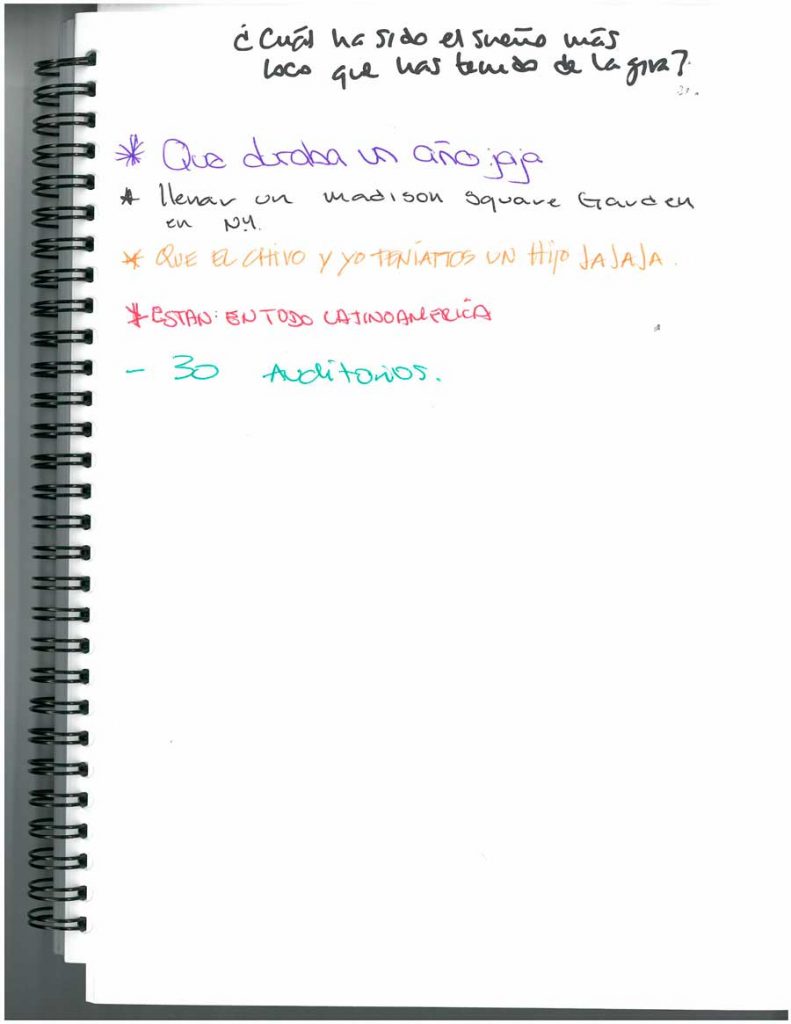 ¿Cuál ha sido el sueño más
loco que has tenido de la gira?
* Que duraba un año jaja
* llenar un madison square Garden
en NY.
* QUE EL CHIVO Y YO TENÍAMOS UN HIJO JAJAJA.
* ESTAR EN TODO LATINOAMERICA
- 30 Auditorios.